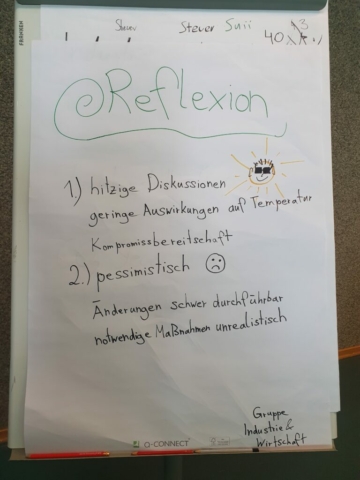 Steuer
40
Reflexion
1.) hitzige Diskussionen
geringe Auswirkungen auf Temperatur
Kompromissbereitschaft
2.) pessimistisch
Änderungen schwer durchführbar
notwendige Maßnahmen unrealistisch
Gruppe
Industrie &
Wirtschaft
Q-CONNECT